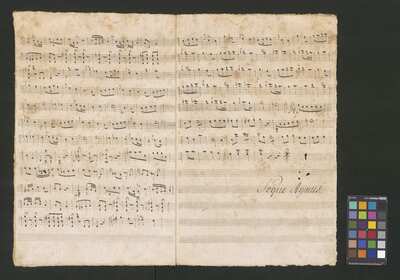 Segue Agnus